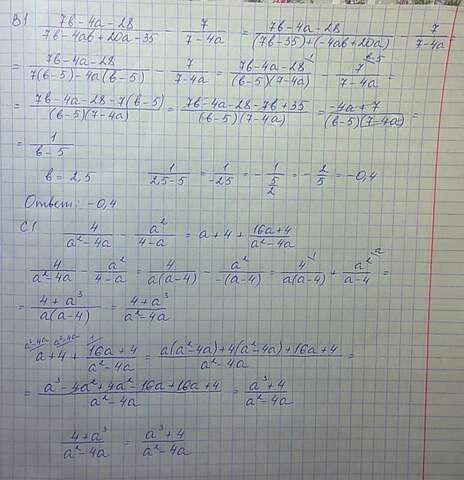 B1 (7b-4a-28)/(7b-4ab+20a-35) - 7/(7-4a) = (7b-4a-28)/((7b-35)+(-4ab+20a)) - 7/(7-4a)
= (7b-4a-28)/(7(b-5)-4a(b-5)) - 7/(7-4a) = (7b-4a-28)/((b-5)(7-4a)) - 7/(7-4a) =
= (7b-4a-28-7(b-5))/((b-5)(7-4a)) = (7b-4a-28-7b+35)/((b-5)(7-4a)) = (-4a+7)/((b-5)(7-4a)) =
= 1/(b-5)
b = 2,5 1/(2,5-5) = 1/(-2,5) = -1/(5/2) = -2/5 = -0,4
Ответ: -0,4
C1 4/(a²-4a) - a²/(4-a) = a+4+(16a+4)/(a²-4a)
4/(a²-4a) - a²/(4-a) = 4/(a(a-4)) - a²/(-(a-4)) = 4/(a(a-4)) + a²/(a-4) =
= (4+a³)/(a(a-4)) = (4+a³)/(a²-4a)
a+4+(16a+4)/(a²-4a) = (a(a²-4a)+4(a²-4a)+16a+4)/(a²-4a) =
= (a³-4a²+4a²-16a+16a+4)/(a²-4a) = (a³+4)/(a²-4a)
(4+a³)/(a²-4a) = (a³+4)/(a²-4a)